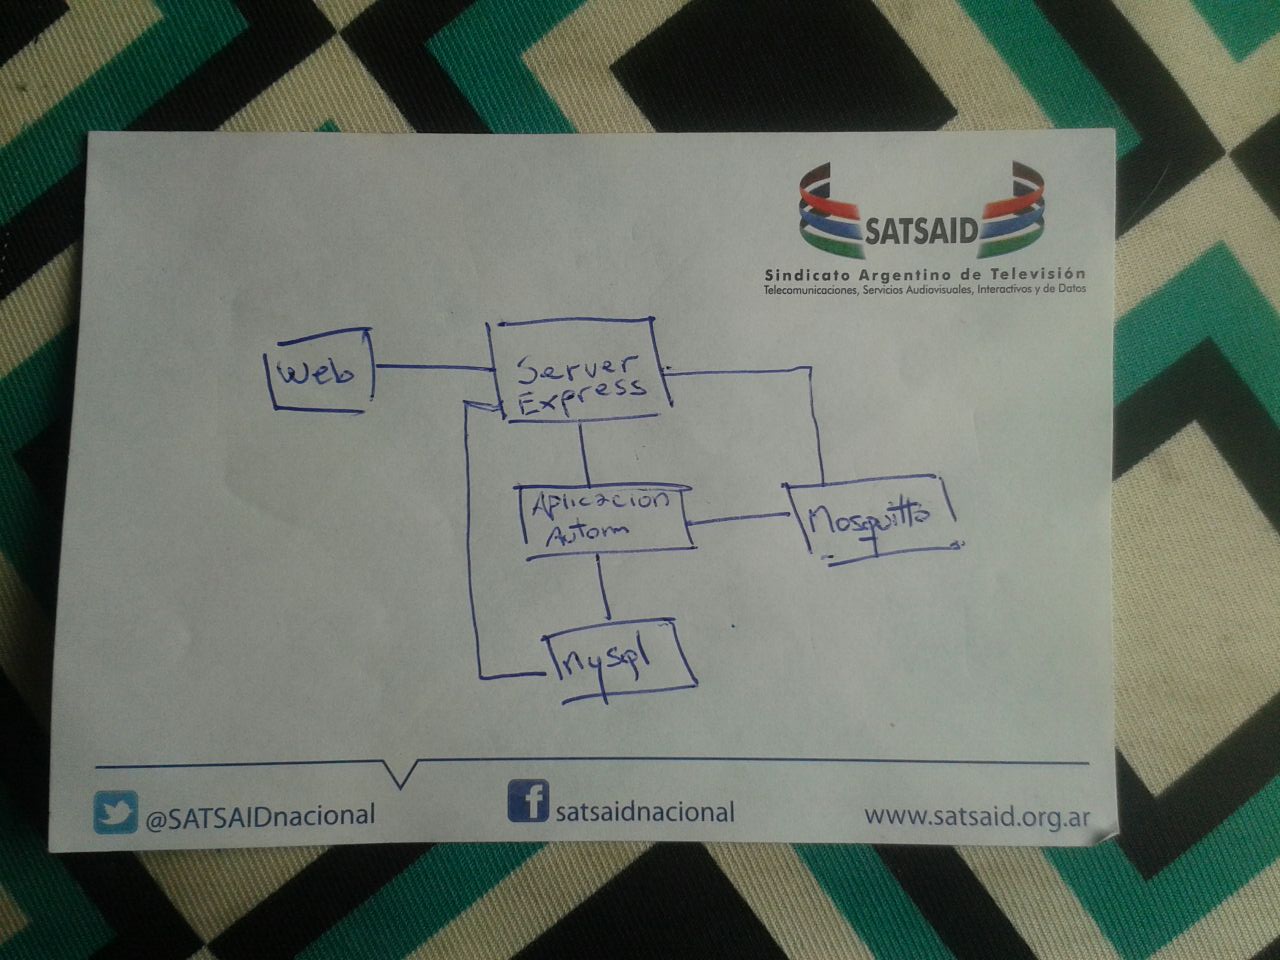 SATSAID
Sindicato Argentino de Televisión
Telecomunicaciones, Servicios Audiovisuales, Interactivos y de Datos
Web
Server
Express
Aplicacion
Autom
Mosquitto
mysql
@SATSAIDnacional
f
satsaidnacional
www.satsaid.org.ar